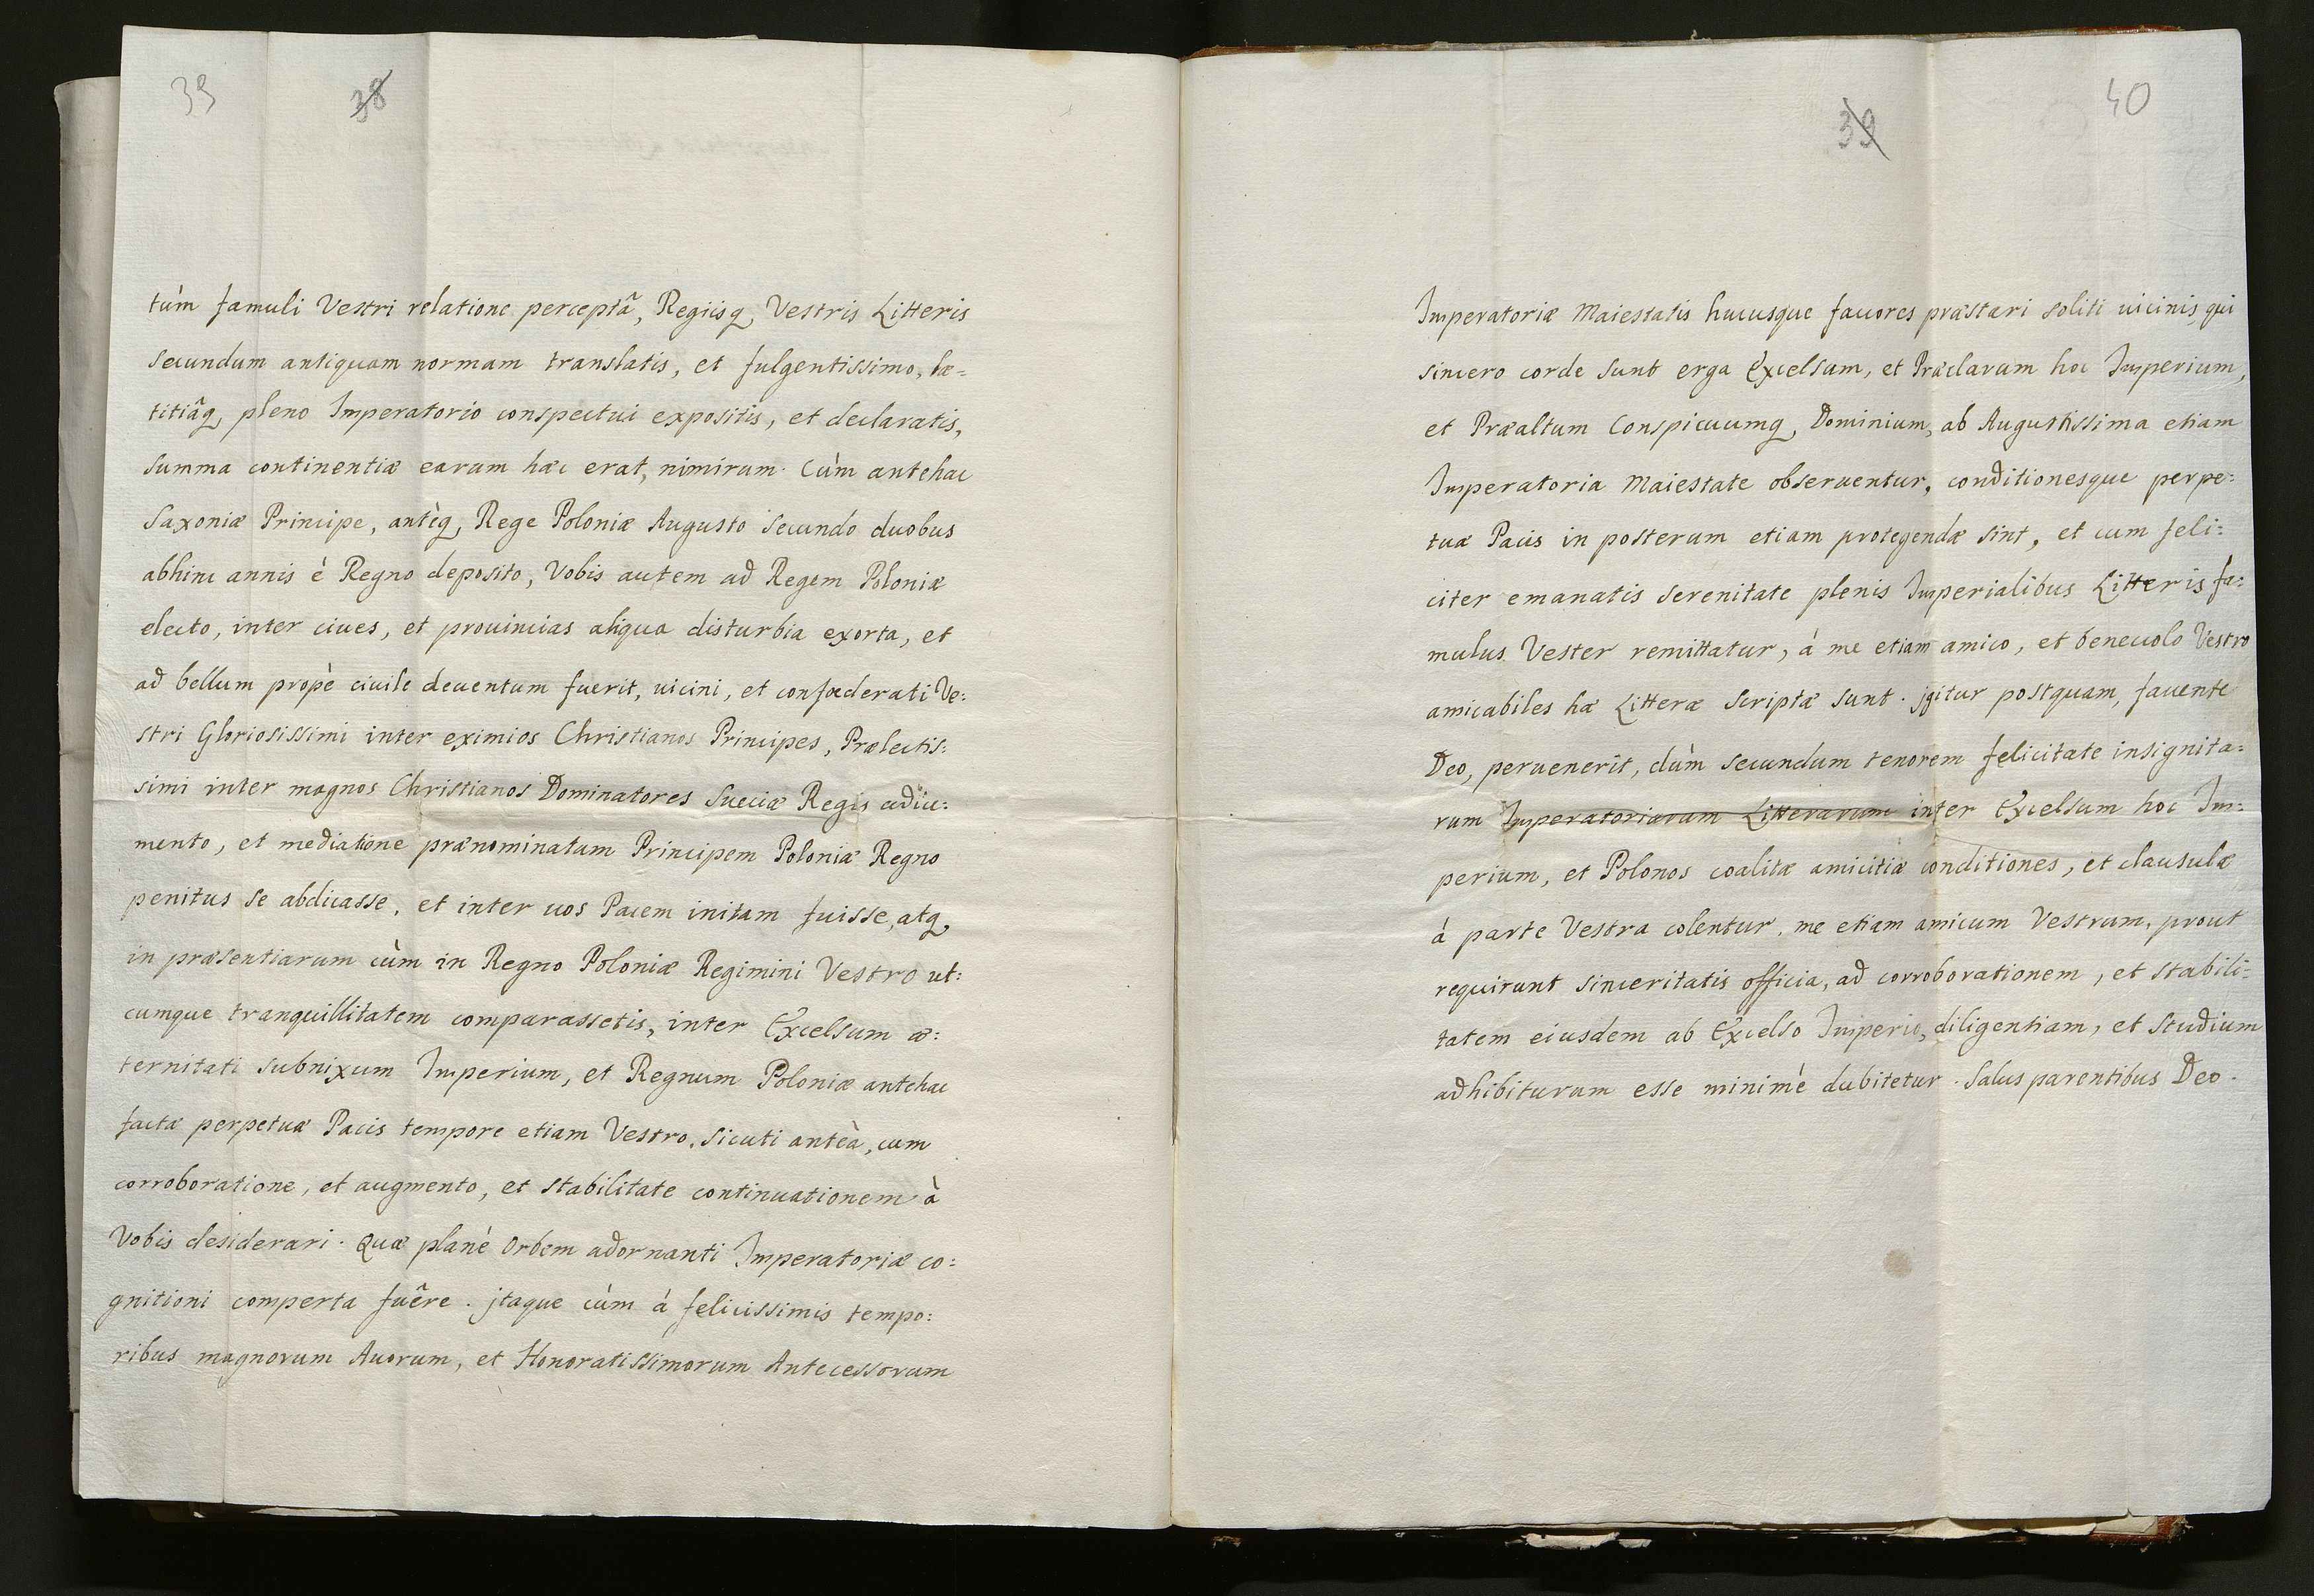 39 38
tùm famuli Vestri relatione perceptâ, Regiisq, Vestris Litteris
secundum antiquam normam translatis, et fulgentissimo, læ=
titiâq, pleno Imperatorio conspectui expositis, et declaratis,
summa continentiæ earum hæc erat, nimirum. Cùm antehac
Saxoniæ Principe, antèq, Rege Poloniæ Augusto Secundo duobus
abhinc annis è Regno deposito, Vobis autem ad Regem Poloniæ
electo, inter ciues, et prouincias aliqua disturbia exorta, et
ad bellum propè ciuile deuentum fuerit, uicini, et confœderati Ve:
stri Gloriosissimi inter eximios Christianos Principes, Prælectis:
simi inter magnos Christianos Dominatores Sueciæ Regis adiu:
mento, et mediatione prænominatum Principem Poloniæ Regno
penitus se abdicasse, et inter uos Pacem initam fuisse, atq,
in præsentiarum cùm in Regno Poloniæ Regimini Vestro ut:
cumque tranquillitatem comparassetis, inter Excelsum æ:
ternitati subnixum Imperium, et Regnum Poloniæ antehac
factæ perpetuæ Pacis tempore etiam Vestro, sicuti anteà, cum
corroboratione, et augmento, et stabilitate continuationem à
Vobis desiderari. Quæ planè Orbem adornanti Imperatoriæ co:
gnitioni comperta fuêre. jtaque cùm à felicissimis tempo:
ribus magnorum Auorum, et Honoratissimorum Antecessorum
39 40
Imperatoriæ Maiestatis hucusque fauores præstari soliti uicinis, qui
sincero corde sunt erga Excelsum, et Præclarum hoc Imperium,
et Præaltum Conspicuumq, Dominium, ab Augustissima etiam
Imperatoria Maiestate obseruentur, conditionesque perpe:
tuæ Pacis in posterum etiam protegendæ sint, et cum feli:
citer emanatis serenitate plenis Imperialibus Litteris fa:
mulus Vester remittatur, à me etiam amico, et beneuolo Vestro
amicabiles hæ Litteræ scriptæ sunt. jgitur postquam, fauente
Deo, peruenerit, dùm secundum tenorem felicitate insignita:
rum Imperatoriarum Litterarum inter Excelsum hoc Im:
perium, et Polonos coalitæ amicitiæ conditiones, et clausulæ
à parte Vestra colentur, me etiam amicum Vestrum, prout
requirunt sinceritatis officia, ad corroborationem, et stabili:
tatem eiusdem ab Excelso Imperio, diligentiam, et studium
adhibiturum esse minimè dubitetur. Salus parentibus Deo.